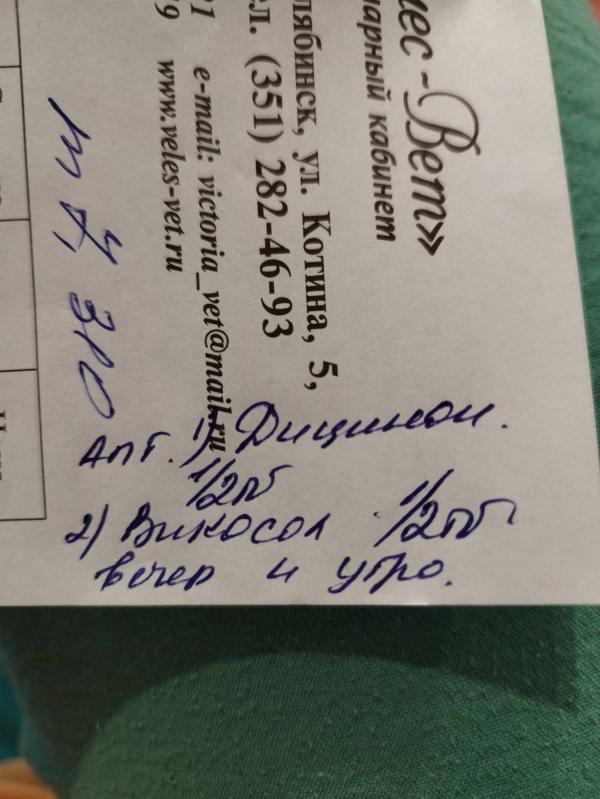 лес-Вет»
нарный кабинет
лябинск, ул. Котина, 5,
ел. (351) 282-46-93
e-mail: victoria_vet@mail.ru
www.veles-vet.ru
Апт. 1) Дицинон.
1/2 тб
2) Викасол 1/2 тб
вечер и утро.